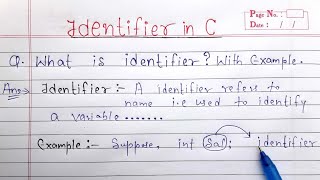 Identifier in C
Page No.
Date : / /
Q. What is identifier? With Example.
Ans → Identifier :- A identifier refers to
name i.e used to identify
a variable .......
Example :- Suppose, int Sal; identifier